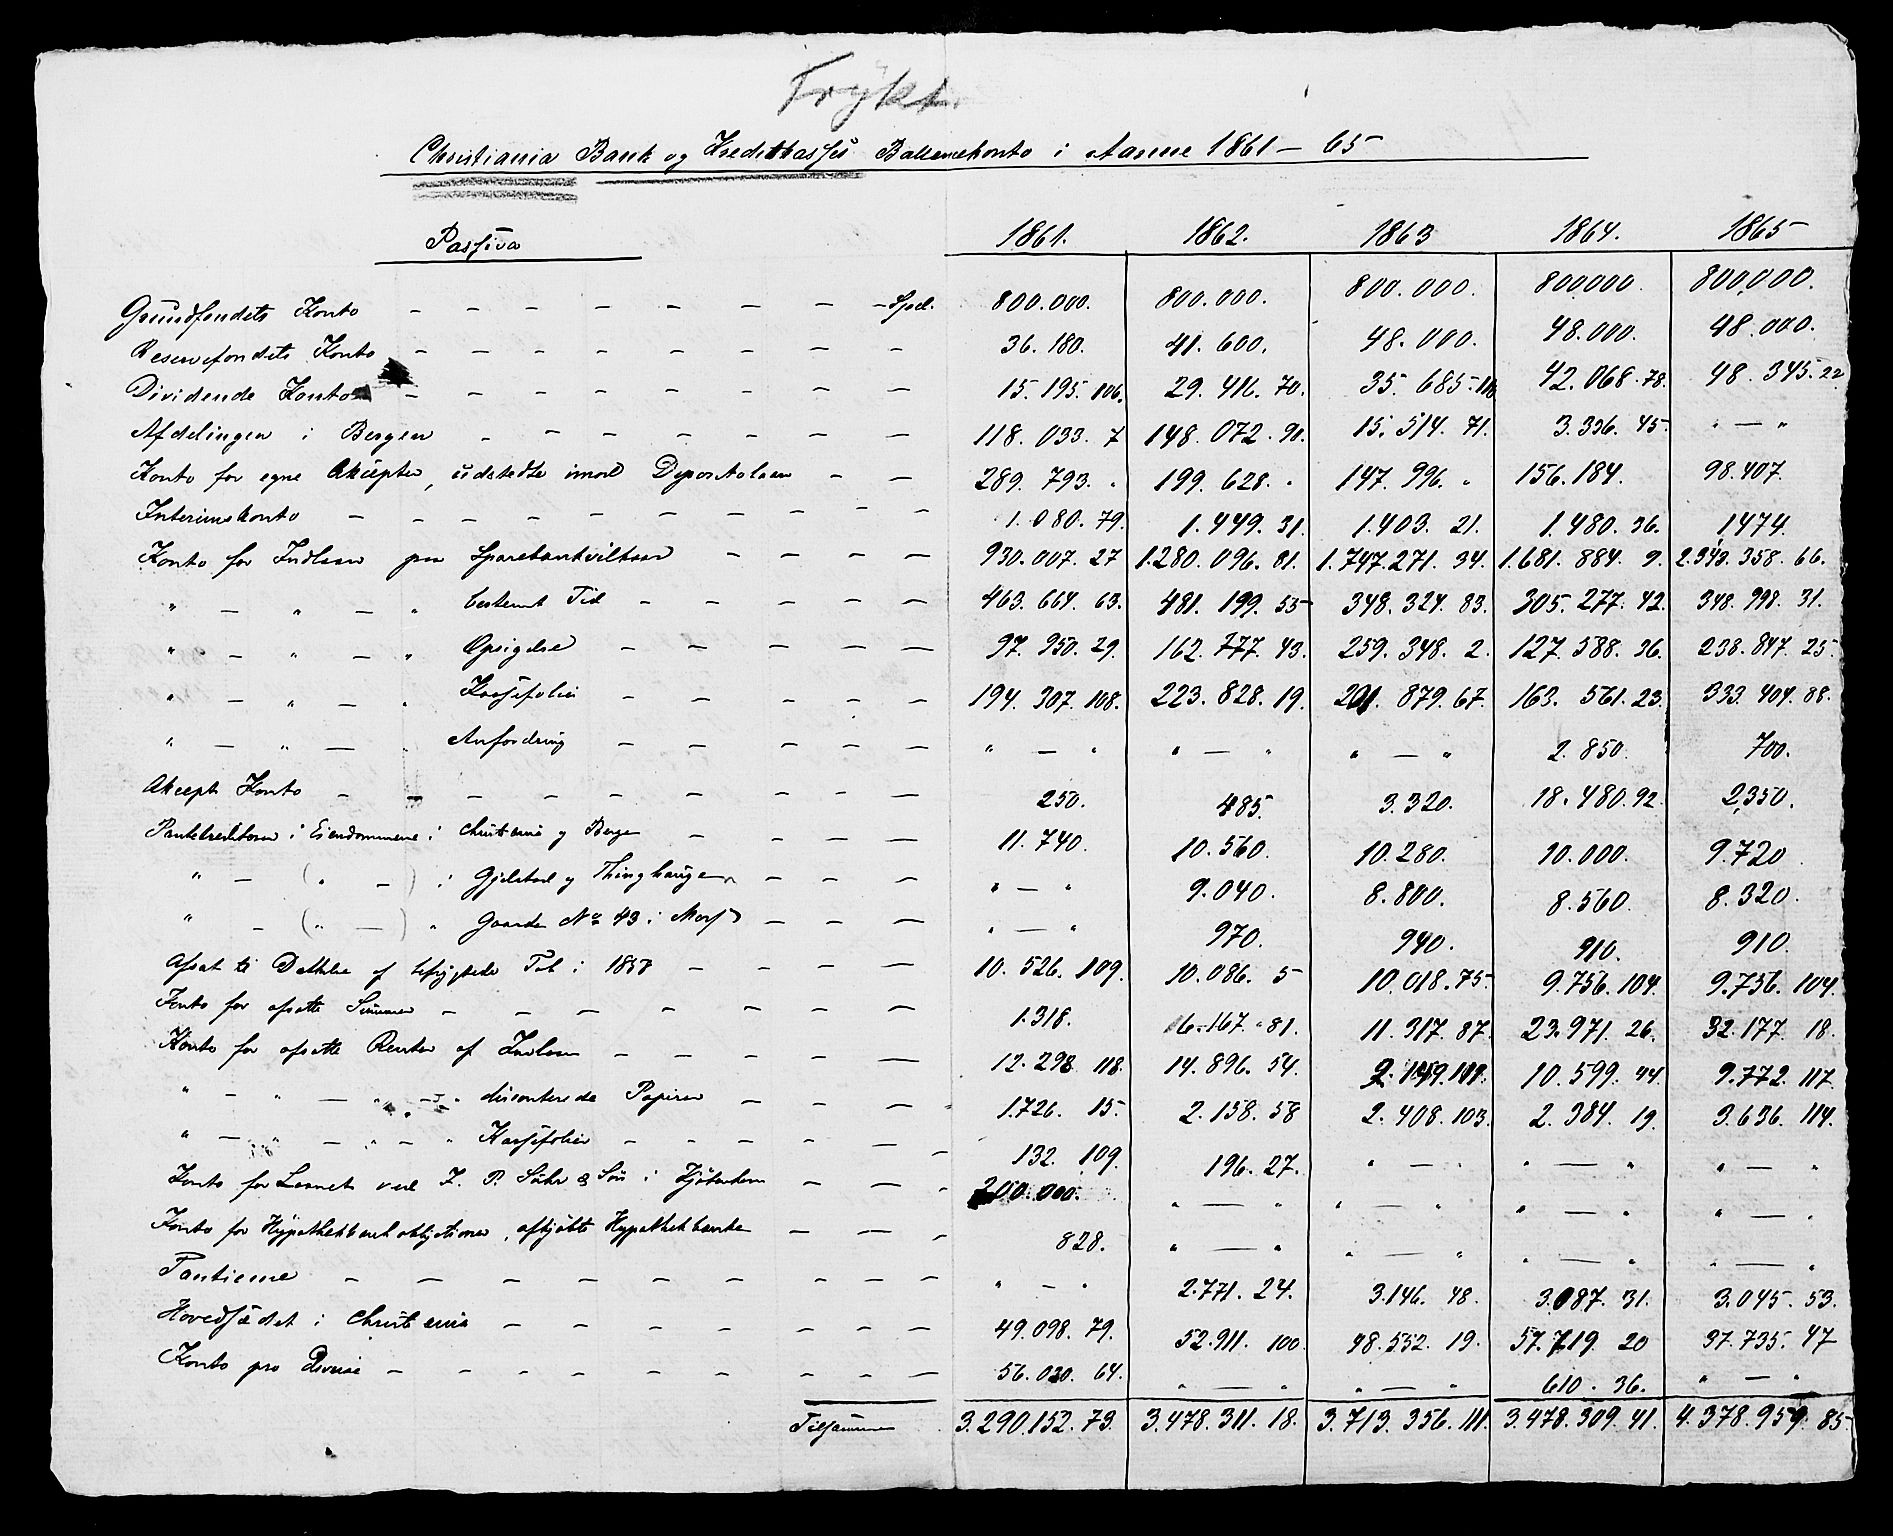 Trykt
Christiania Bank og Kreditkasses Ballancekonto i Aarene 1861 – 65
Passiva 1861. 1862. 1863 1864. 1865
Grundfondets Konto – – – – – – – – Spd. 800.000. 800.000. 800.000. 800000. 800,000.
Reservefondets Konto – – – – – – – – 36.180. 41.600. 48.000. 48.000. 48.000.
Dividende Konto – – – – – – – – 15.195.106. 29.416.70. 35.685.118 42.068.78. 48.345.22
Afdelingen i Bergen – – – – – – – 118.033.7 148.072.90. 15.514.71. 3.336.45 " — "
Konto for egne Akcepter, udstedte imod Depositolaan – – 289.793. " 199.628. " 147.996. " 156.184. 98.407.
Interimskonto – – – – – – – – – 1.080.79. 1.449.31. 1.403.21. 1.480.36. 1,474.
Konto for Indlaan paa Sparebankvilkaar – – – – 930.007.27 1.280.096.81. 1.747.271.34. 1.681.884.9. 2.943.358.66.
" – " – " bestemt Tid – – – – – 463.664.63. 481.199.55 348.324.83. 305.277.42. 348.998.31.
" – " – " Opsigelse – – – – – 97.950.29. 162.777.43. 259.348.2. 127.588.36. 238.847.25
" – " – " Kassefolier – – – – – 194.307.108. 223.828.19. 201.879.67. 163.561.23. 333.404.88.
" – " – " Anfordring – – – – – " — " " — " " — " 2.850. 700.
Akcept Konto – – – – – – – – – 250. 485. 3.320. 18.480.92. 2,350.
Pantekreditorer i Eiendommene i Christiania og Bergen – – – – 11.740. 10.560. 10.280. 10.000. 9.720
" – ( " – ) i Gjelstad og Thinghaugen – – – " — " 9.040. 8.800. 8.560. 8.320.
" – ( " – ) " Gaarden No 43 i Moss – – – " — " 970. 940. 910. 910.
Afsat til Dækkelse af befrygtede Tab i 1857 – – – – 10.526.109. 10.086.5 10.018.75 9.756.104. 9.756.104.
Konto for afsatte Summer – – – – – – – 1.318. 6.167.81. 11.317.87. 23.971.26. 32.177.18.
Konto for afsatte Renter af Indlaan – – – – – 12.298.118. 14.896.54. 10.599.44 9.772.117.
" – " — " – " disconterede Papirer – – – – 1.726.15. 2.158.58 2.408.103. 2.384.19. 3.636.114.
" – " – " – " Kassefolier – – – – – – 132.109. 196.27. " — " " — " " — "
Konto for Laanet ved Z. P. Suhr & Søn i Kjøbenhavn – – – 200.000. " — " " — " " — " " — "
Konto for Hypothekbankobligationer, afkjøbte Hypothekbanken – – – 828. " — " " — " " — " " — "
Tantieme – – – – – – – – – – " — " 2.771.24. 3.146.48. 3.087.31. 3.045.53.
Hovedsædet i Christiania – – – – – – – 49.098.79. 52.911.100. 48.552.19. 57.719.20 37.735.47
Konto pro Diverse – – – – – – – – – 56.020.64. " — " " — " 610.36. " — "
Tilsammen 3.290.152.73. 3.478.311.18. 3.713.356.111. 3.478.309.41. 4.378.959.85